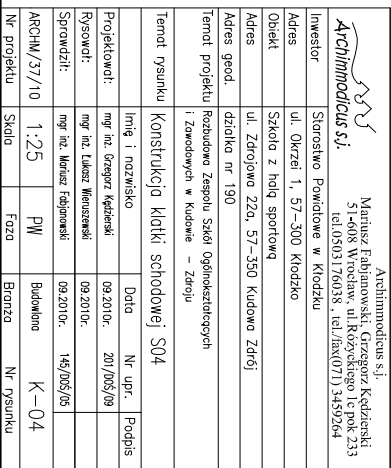 Archimmodicus s.j.
Archimmodicus s.j.
Mariusz Fabjanowski, Grzegorz Kędzierski
51-608 Wrocław, ul.Różyckiego 1c pok 233
tel.0503176038 , tel./fax(071) 3459264
Inwestor Starostwo Powiatowe w Kłodzku
Adres ul. Okrzei 1, 57-300 Kłodzko
Obiekt Szkoła z halą sportową
Adres ul. Zdrojowa 22a, 57-350 Kudowa Zdrój
Adres geod. działka nr 190
Temat projektu Rozbudowa Zespołu Szkół Ogólnokształcących
i Zawodowych w Kudowie - Zdroju
Temat rysunku Konstrukcja klatki schodowej S04
Imię i nazwisko Data Nr upr. Podpis
Projektował: mgr inż. Grzegorz Kędzierski 09.2010r. 201/DOŚ/09
Rysował: mgr inż. Łukasz Wieruszewski 09.2010r.
Sprawdził: mgr inż. Mariusz Fabjanowski 09.2010r. 145/DOŚ/05
ARCHM/37/10 1:25 PW Budowlana K-04
Nr projektu Skala Faza Branża Nr rysunku